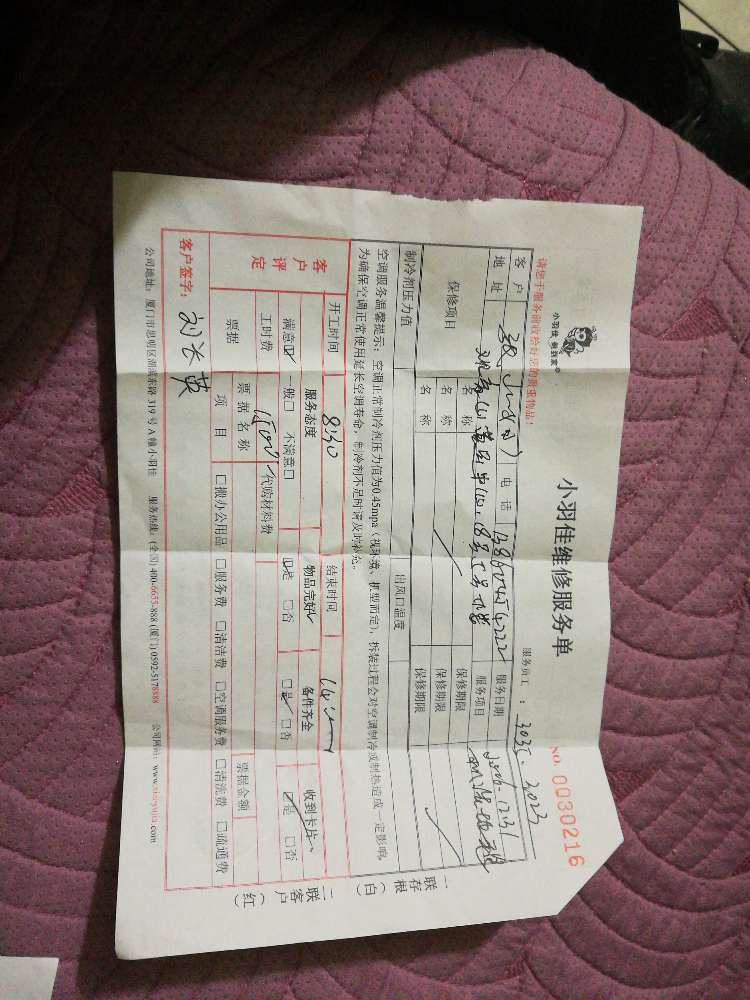 小羽佳 一搬到家®
小羽佳维修服务单
NO. 0030216
请您于服务前收拾好您的贵重物品！
服务员工：3035 3023
客户 电话 服务日期
地址 服务项目
保修项目 名称 保修期限
名称 保修期限
名称 保修期限
制冷剂压力值 出风口温度
空调服务温馨提示：空调正常制冷剂压力值为0.45mpa（视环境、机型而定），拆装过程会对空调制冷或制热造成一定影响，
为确保空调正常使用延长空调寿命，制冷剂不足时请及时补充。
开工时间 8:30 结束时间
客户评定 服务态度 物品完好 备件齐全 收到卡片
满意☑ 一般□ 不满意□ ☑是 □否 ☑是 □否 ☑是 □否
工时费 1500 代购材料费
票据 票据名称 票据金额
项目 □搬办公用品 □服务费 □清洁费 □空调服务费 □清洗费 □疏通费
客户签字：
公司地址：厦门市思明区湖滨东路 319 号 A 幢小羽佳 服务热线：(全国) 400-6655-888 (厦门) 0592-5178888 公司网站：www.xiaoyujia.com
一联存根（白）
二联客户（红）